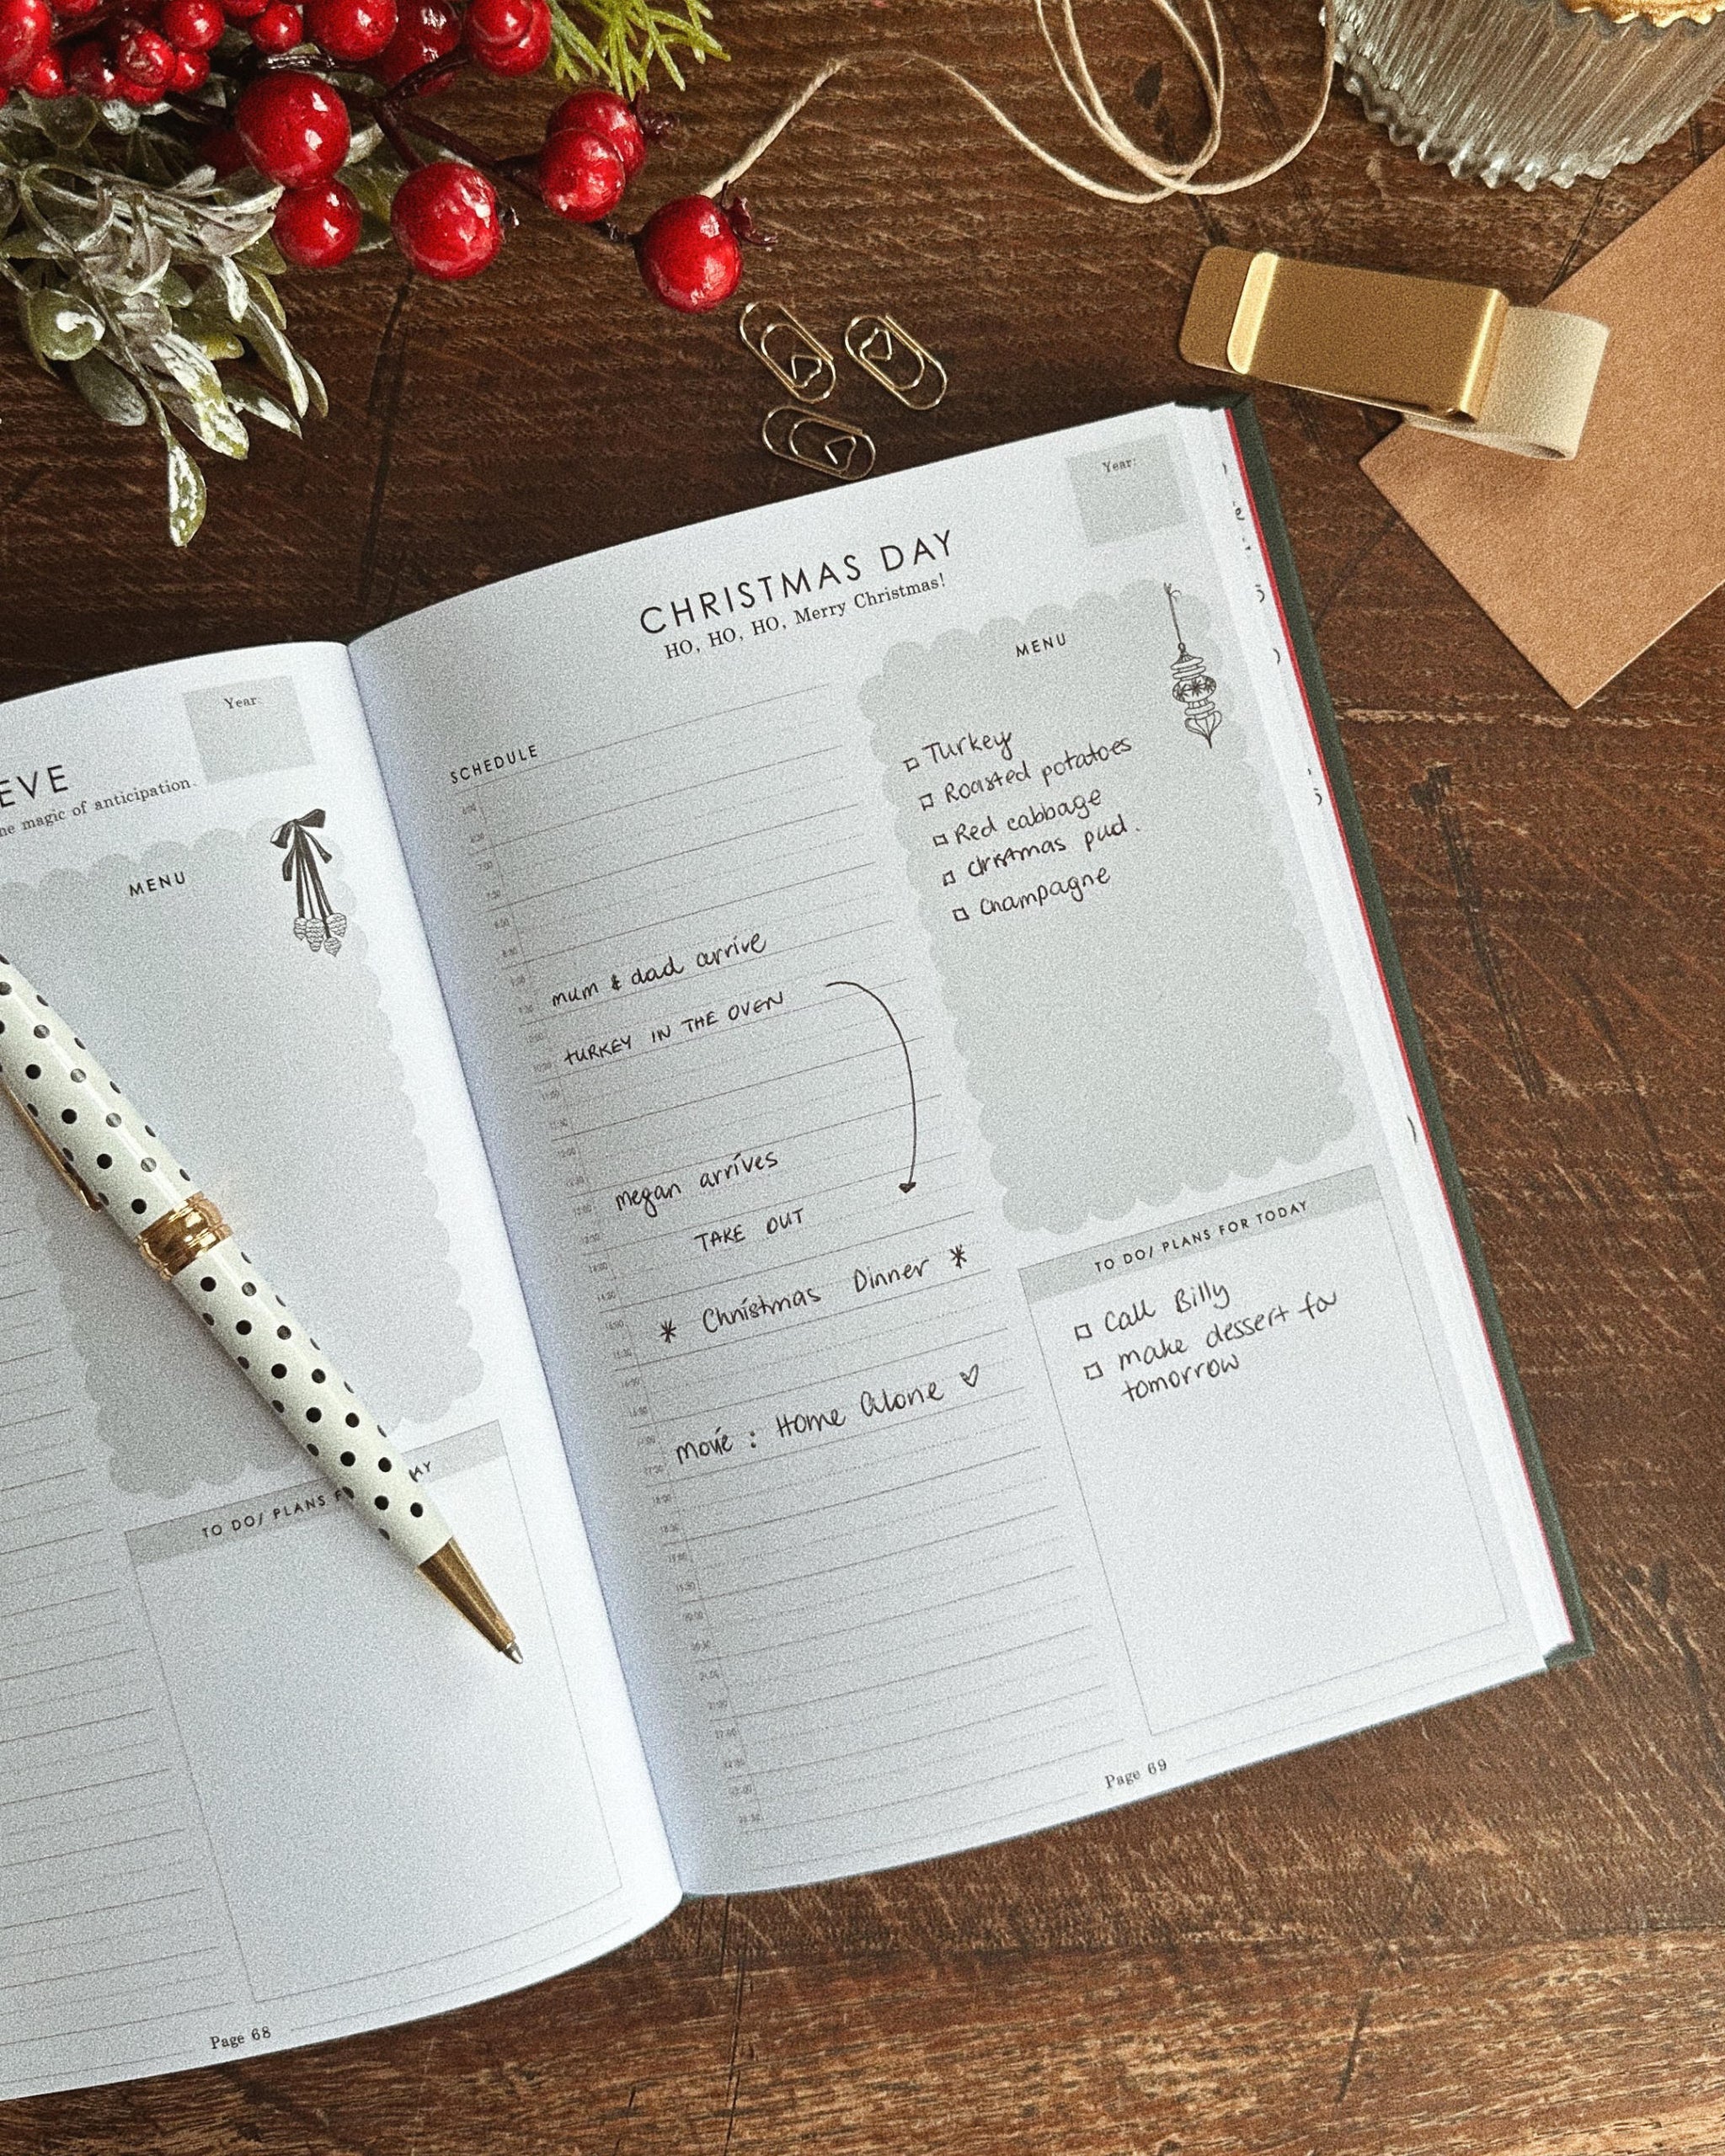 EVE
he magic of anticipation.
Year:
MENU
TO DO/ PLANS F
AY
Page 68
CHRISTMAS DAY
HO, HO, HO, Merry Christmas!
Year:
SCHEDULE
mum & dad arrive
TURKEY IN THE OVEN
megan arrives
TAKE OUT
* Christmas Dinner *
movie : Home Alone ♡
MENU
Turkey
Roasted potatoes
Red cabbage
Christmas pud.
Champagne
TO DO/ PLANS FOR TODAY
Call Billy
make dessert for
tomorrow
Page 69